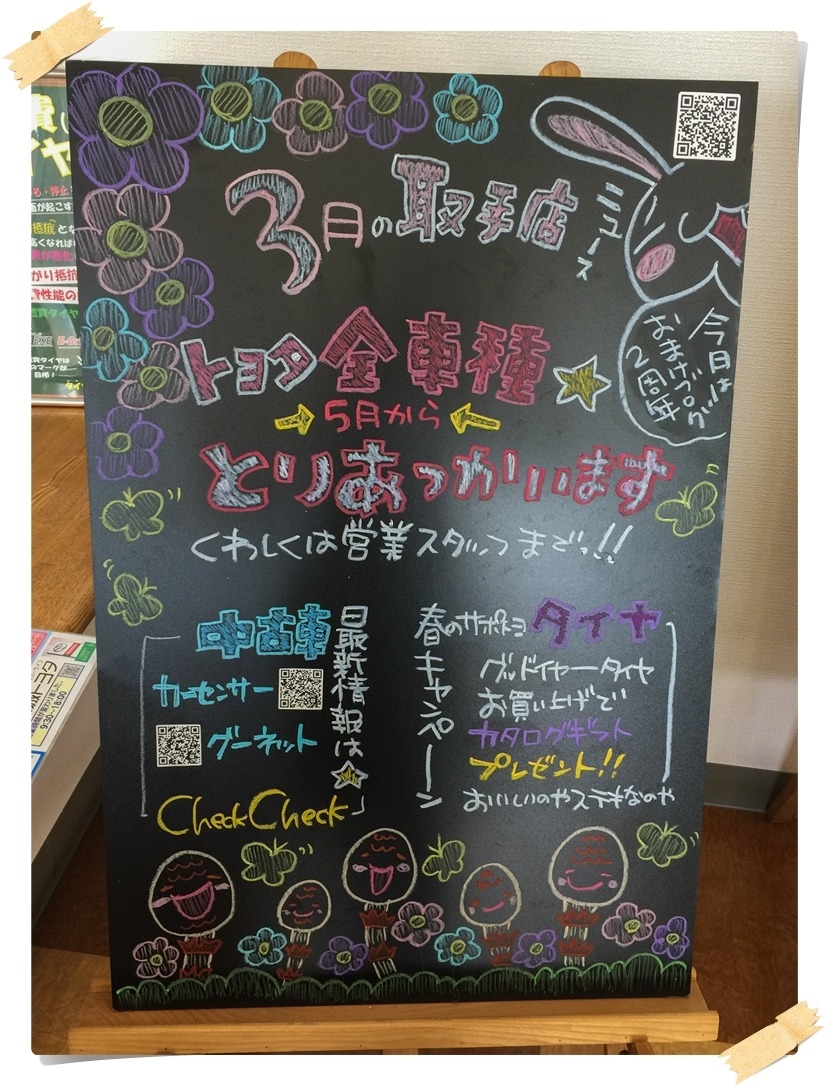 3月の取手店
ニュース
今日は
おまけブログ
2周年
トヨタ全車種
5月から
とりあつかいます
くわしくは営業スタッフまでっ!!
中古車
最新情報は
カーセンサー
グーネット
Check Check
春のサポトヨ
タイヤ
キャンペーン
グッドイヤータイヤ
お買い上げで
カタログギフト
プレゼント!!
おいしいのやステキなのや
9:30~18:00